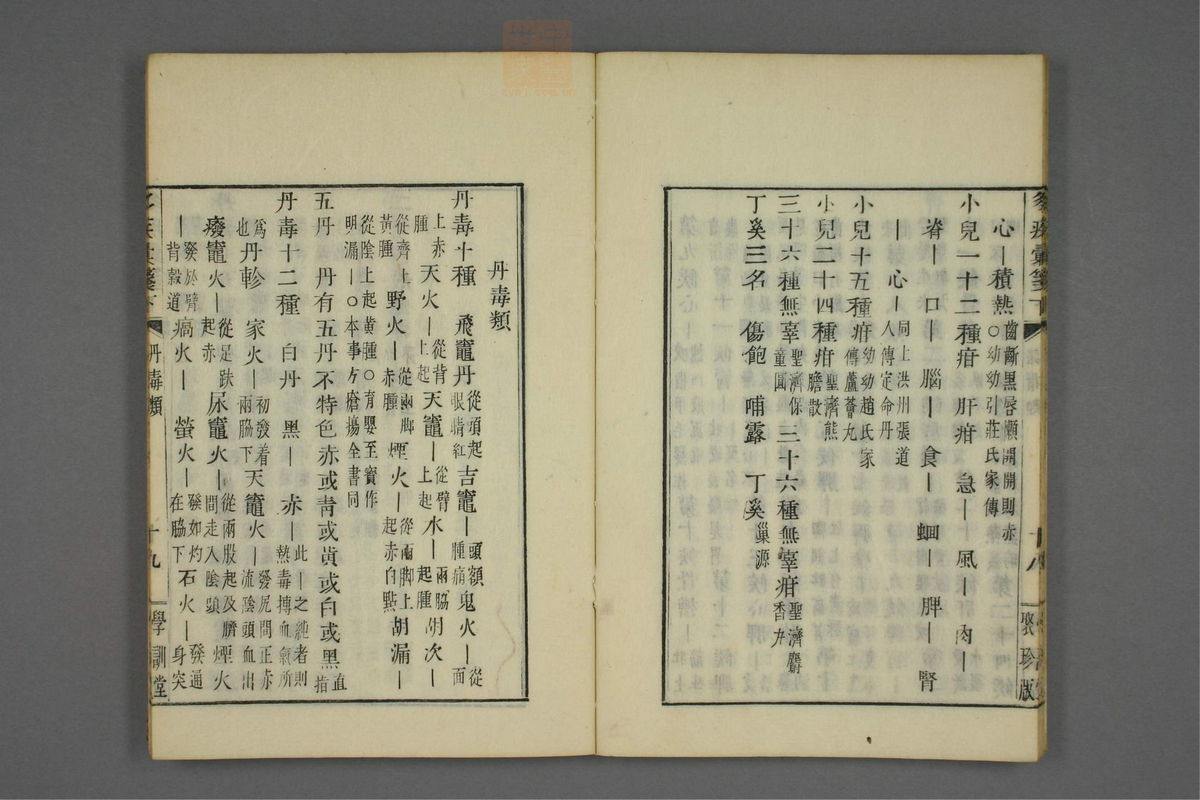 心｜積熱 齒齗黑唇懶開開則赤
○幼幼引莊氏家傳
小兒一十二種疳 肝疳 急｜ 風｜ 肉｜
脊｜ 口｜ 腦｜ 食｜ 蛔｜ 脾｜ 腎
｜ 心｜ 同上洪州張道
人傳定命丹
小兒十五種疳 幼幼趙氏家
傳蘆薈丸
小兒二十四種疳 聖濟熊
膽散
三十六種無辜 聖濟保
童圓 三十六種無辜疳 聖濟麝
香丸
丁奚三名 傷飽 哺露 丁奚 巢源
十八
聚珍版
丹毒類
丹毒十種 飛竈丹 從頭起
眼睛紅 吉竈｜ 頭額
腫痛 鬼火｜ 從
面
上赤
腫 天火｜ 從背
上起 天竈｜ 從臂
上起 水｜ 兩脇
起腫 胡次｜
從臍上
黃腫 野火｜ 從兩脚
赤腫 煙火｜ 從兩脚上
起赤白點 胡漏｜
從陰上起黃腫○育嬰至寶作
明漏｜○本事方瘡瘍全書同
五丹 丹有五丹不特色赤或青或黃或白或黑 直
指
丹毒十二種 白丹 黑｜ 赤｜ 此｜之純者則
熱毒搏血氣所
爲
也 丹軫 家火｜ 初發着
兩脇下 天竈火｜ 發尻間正赤
流陰頭血出
癈竈火｜ 從足趺
起赤 尿竈火｜ 從兩股起及臍
間走入陰頭 煙火
｜ 發於臂
背穀道 㾔火｜ 螢火｜ 發如灼
在脇下 石火｜ 發通
身突
丹毒類
十九
學訓堂